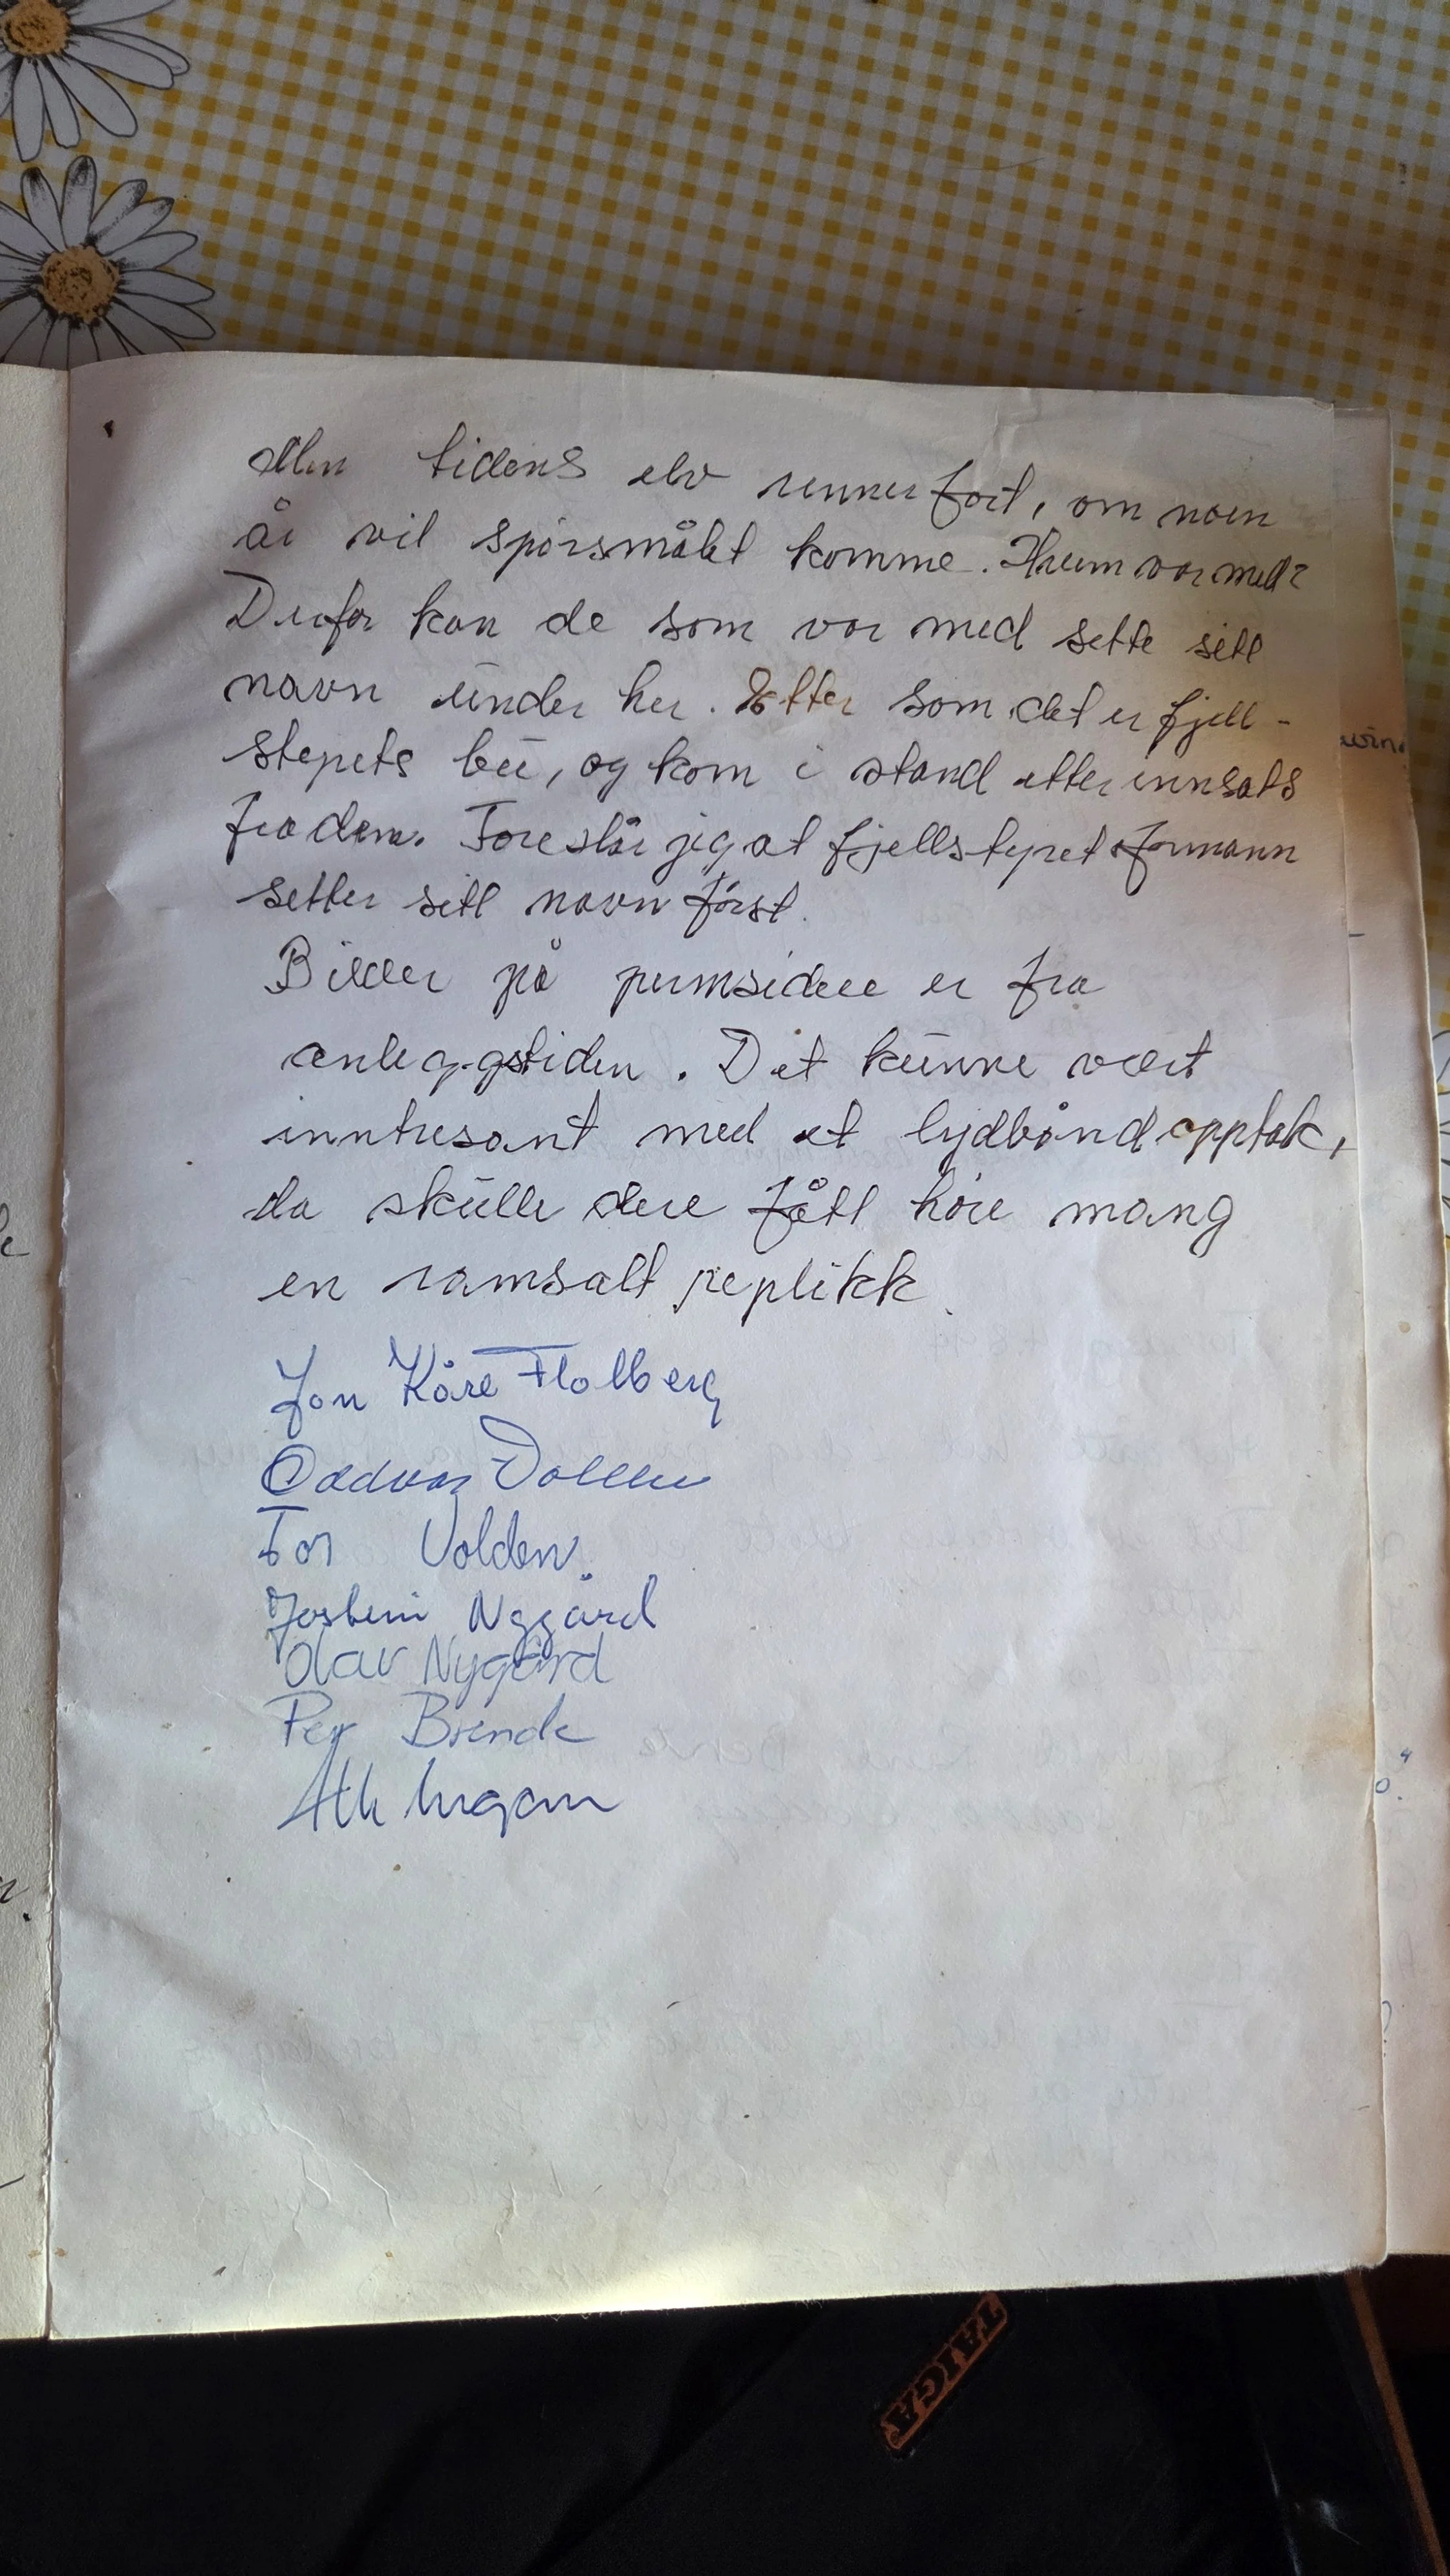 Men tidens elv renner fort, om noen
år vil spörsmålet komme. Hvem var med?
Derfor kan de som var med sette sitt
navn under her. Etter som det er fjell-
styrets bu, og kom i stand etter innsats
fra dem. Foreslår jeg at fjellstyret formann
setter sitt navn först.
Bilder på permsidene er fra
anleggstiden. Det kunne vært
inntresant med et lydbånd opptak,
da skulle dere fått höre mang
en ramsalt replikk.
Jon Kåre Flolberg
Oddvar
Tor Volden.
Jostein Nygård
Olav Nygård
Per Brende
TAIGA